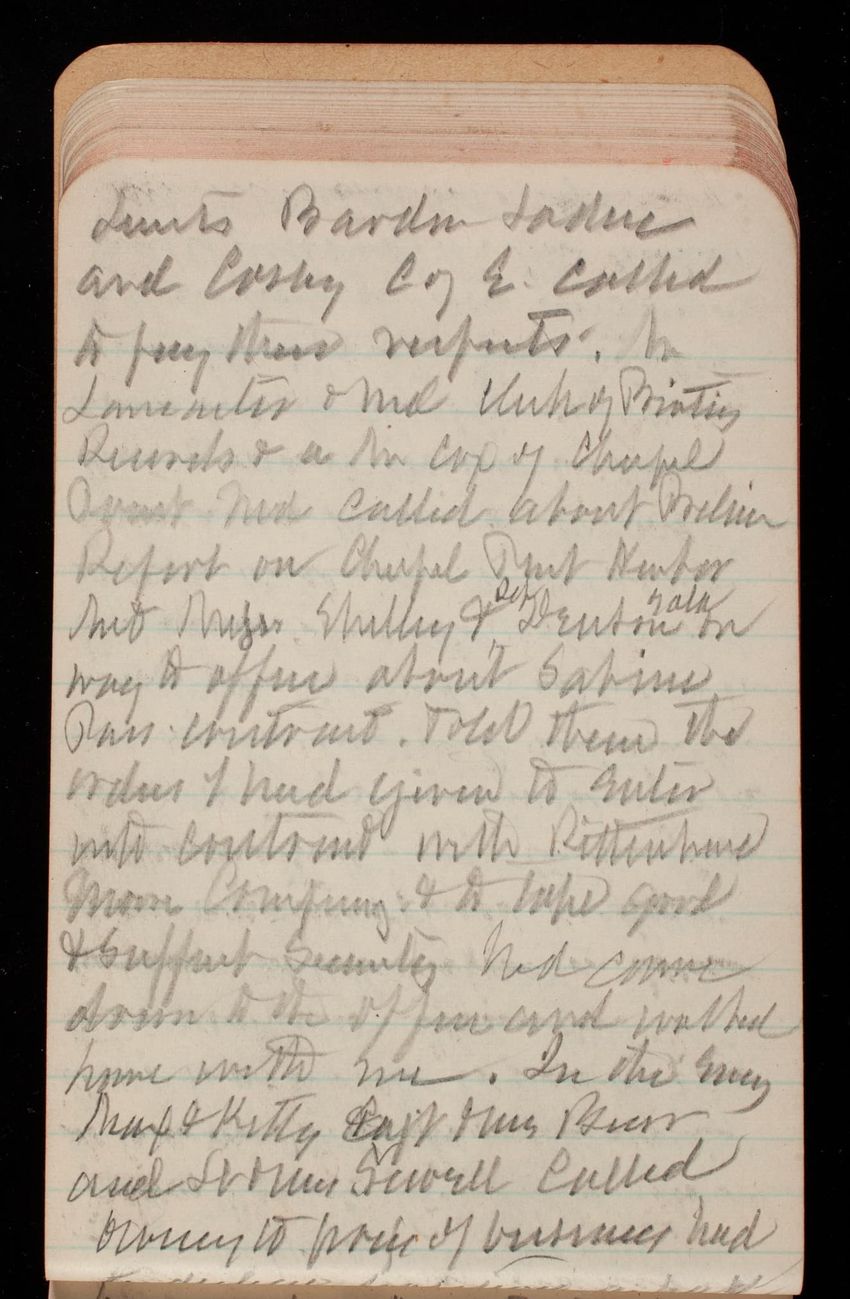 Lieuts Bardin
and Cosby C of E. called
to pay their respects. Mr
Lancaster of Md Clerk of Printing
Records & a Mr Cox of Chapel
Point Md called about Prelim
Report on Chapel Point Harbor
Met Messrs Shelley & Denton on
way to office about Sabine
Pass contract. Told them the
orders I had given to enter
into contract with Rittenhouse
Moore Company & to take good
& Suffict Security Ned came
down to the office and walked
home with me. In the Eveng
Max & Kitty Capt & Mrs
and Lt & Mrs Sewell Called
Owing to press of business had